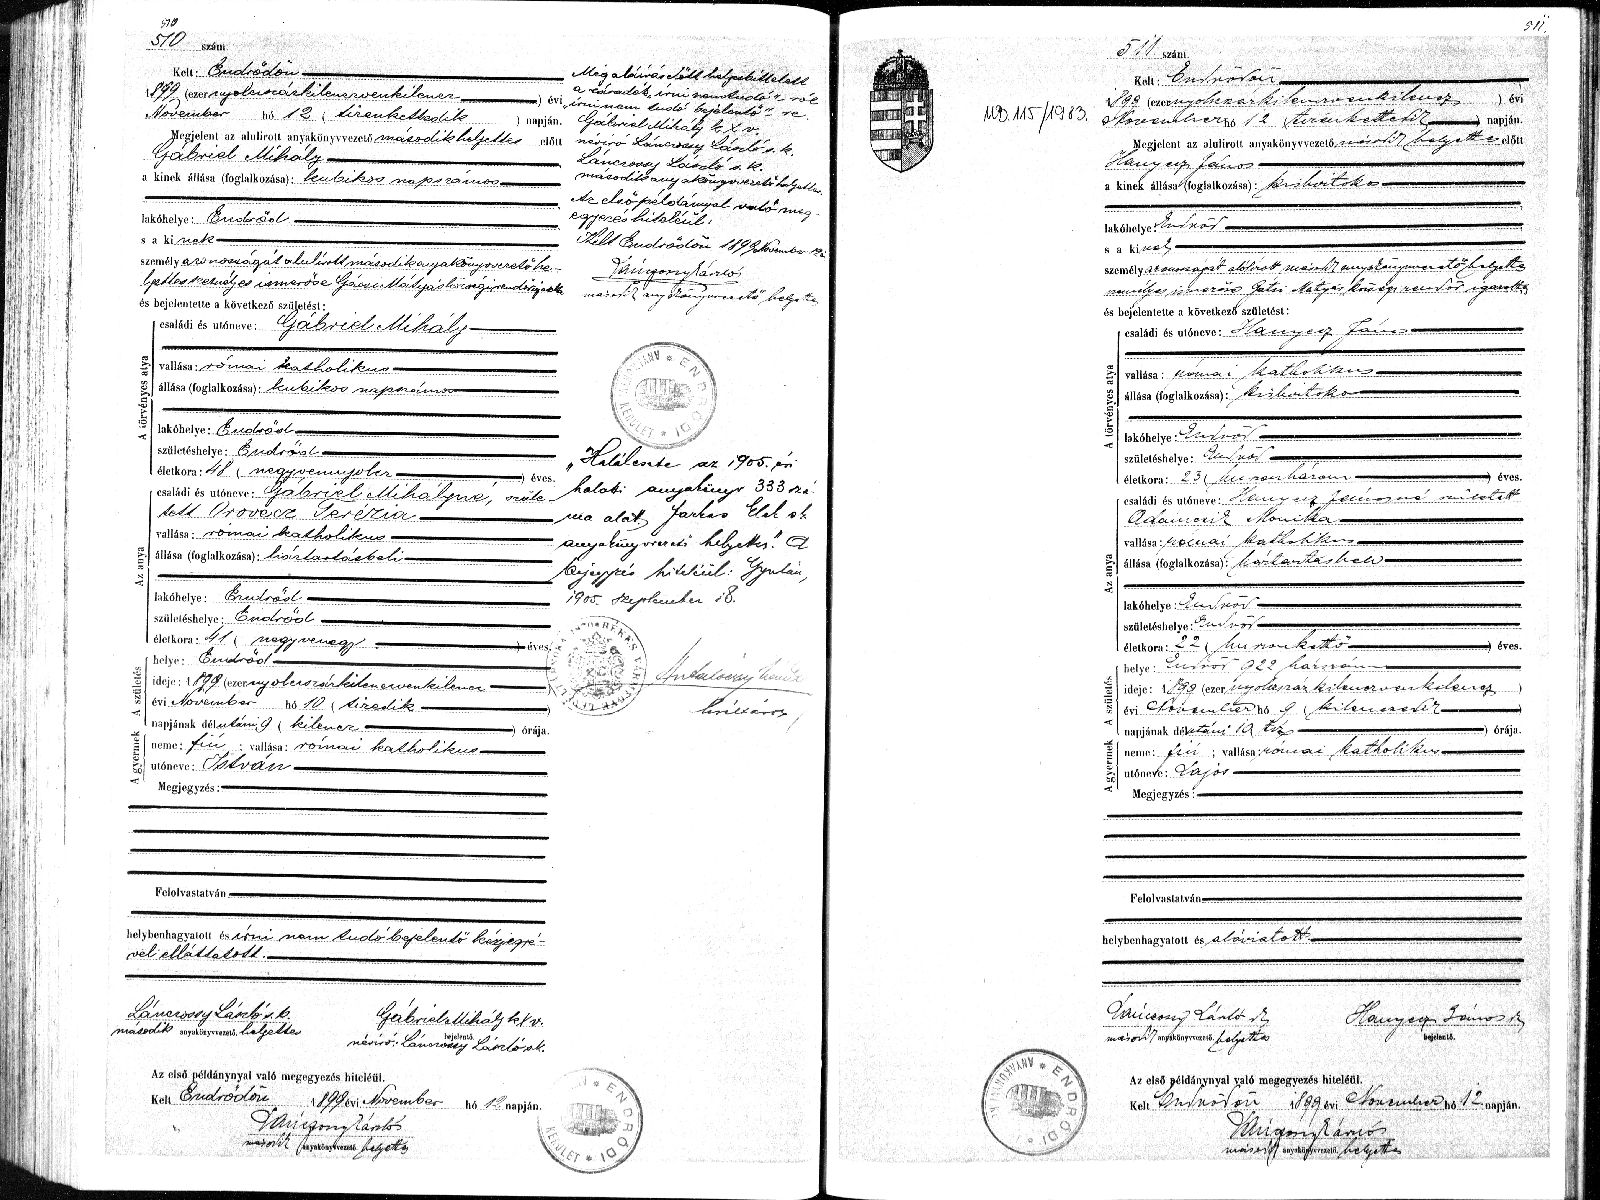 510
510 szám.
Kelt: Endrődön
1899 (ezernyolczszázkilenczvenkilencz) évi
November hó 12 (tizenkettedik) napján.
Megjelent az alulirott anyakönyvvezető második helyettes előtt
Gábriel Mihály
a kinek állása (foglalkozása): kubikos napszámos
lakóhelye: Endrőd
s a kinek
személyazonosságát alulirott második anyakönyvvezető he-
lyettes személyes ismerőse Gácsi Mátyás községi rendőr igazolta
és bejelentette a következő születést:
A törvényes atya
családi és utóneve: Gábriel Mihály
vallása: római katholikus
állása (foglalkozása): kubikos napszámos
lakóhelye: Endrőd
születéshelye: Endrőd
életkora: 48 (negyvennyolcz) éves.
Az anya
családi és utóneve: Gábriel Mihályné, szüle-
tett Orovecz Terézia
vallása: római katholikus
állása (foglalkozása): háztartásbeli
lakóhelye: Endrőd
születéshelye: Endrőd
életkora: 41 (negyvenegy) éves.
A születés
helye: Endrőd
ideje: 1899 (ezernyolczszázkilenczvenkilencz)
évi November hó 10 (tizedik)
napjának délutáni 9 (kilencz) órája.
A gyermek
neme: fiú; vallása: római katholikus
utóneve: István
Megjegyzés:
Felolvastatván
helybenhagyatott és irni nem tudó bejelentő kézjegyé-
vel elláttatott.
Lánczossy László s. k.
második anyakönyvvezető. helyettes
Gábriel Mihály k. x v.
bejelentő.
névíró: Lánczossy László s. k.
Az első példánynyal való megegyezés hiteléül.
Kelt Endrődön 1899 évi November hó 12 napján.
Lánczossy László
második anyakönyvvezető. helyettes
ENDRŐDI ANYAKÖNYVI KERÜLET
Még aláírás előtt helyesbíttetett
a rovatok, "irni nem tudó" ról
"irni nem tudó bejelentő" re.
Gábriel Mihály k. x v.
névíró Lánczossy László s. k.
Lánczossy László s. k.
második anyakönyvvezető helyettes.
Az első példánnyal való meg-
egyezés hiteléül:
Kelt Endrődön 1899 November 12 én
Lánczossy László
második anyakönyvvezető helyettes
ENDRŐDI ANYAKÖNYVI KERÜLET
"Halálesete az 1905. évi
halotti anyakönyv 333 szá-
ma alatt, Farkas Elek s. k.
anyakönyvvezető helyettes". A
bejegyzés hiteléül: Gyulán,
1905. szeptember 18.
levéltáros
511.
511 szám.
MD. 115/1983.
Kelt: Endrődön
1899 (ezernyolczszázkilenczvenkilencz) évi
November hó 12 (tizenkettedik) napján.
Megjelent az alulirott anyakönyvvezető másodk helyettes előtt
Hanyecz János
a kinek állása (foglalkozása): kisbirtokos
lakóhelye: Endrőd
s a kinek
személyazonosságát alólirott másodk anyakönyvvezető helyettes
személyes ismerőse Gácsi Mátyás községi rendőr igazolta
és bejelentette a következő születést:
A törvényes atya
családi és utóneve: Hanyecz János
vallása: római katholikus
állása (foglalkozása): kisbirtokos
lakóhelye: Endrőd
születéshelye: Endrőd
életkora: 23 (huszonhárom) éves.
Az anya
családi és utóneve: Hanyecz Jánosné született
Adamcsik Monika
vallása: római katholikus
állása (foglalkozása): háztartásbeli
lakóhelye: Endrőd
születéshelye: Endrőd
életkora: 22 (huszonkettő) éves.
A születés
helye: Endrőd 922 házszám
ideje: 1899 (ezernyolczszázkilenczvenkilencz)
évi November hó 9 (kilenczedik)
napjának délutáni 10 tíz órája.
A gyermek
neme: fiú; vallása: római katholikus
utóneve: Lajos
Megjegyzés:
Felolvastatván
helybenhagyatott és aláíratott.
Lánczossy László sk
másodk anyakönyvvezető. helyettes
Hanyecz János sk
bejelentő.
Az első példánynyal való megegyezés hiteléül.
Kelt Endrődön 1899 évi November hó 12 napján.
Lánczossy László
másodk anyakönyvvezető. helyettes
ENDRŐDI ANYAKÖNYVI KERÜLET